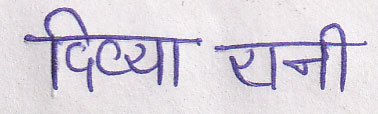 दिव्या रानी